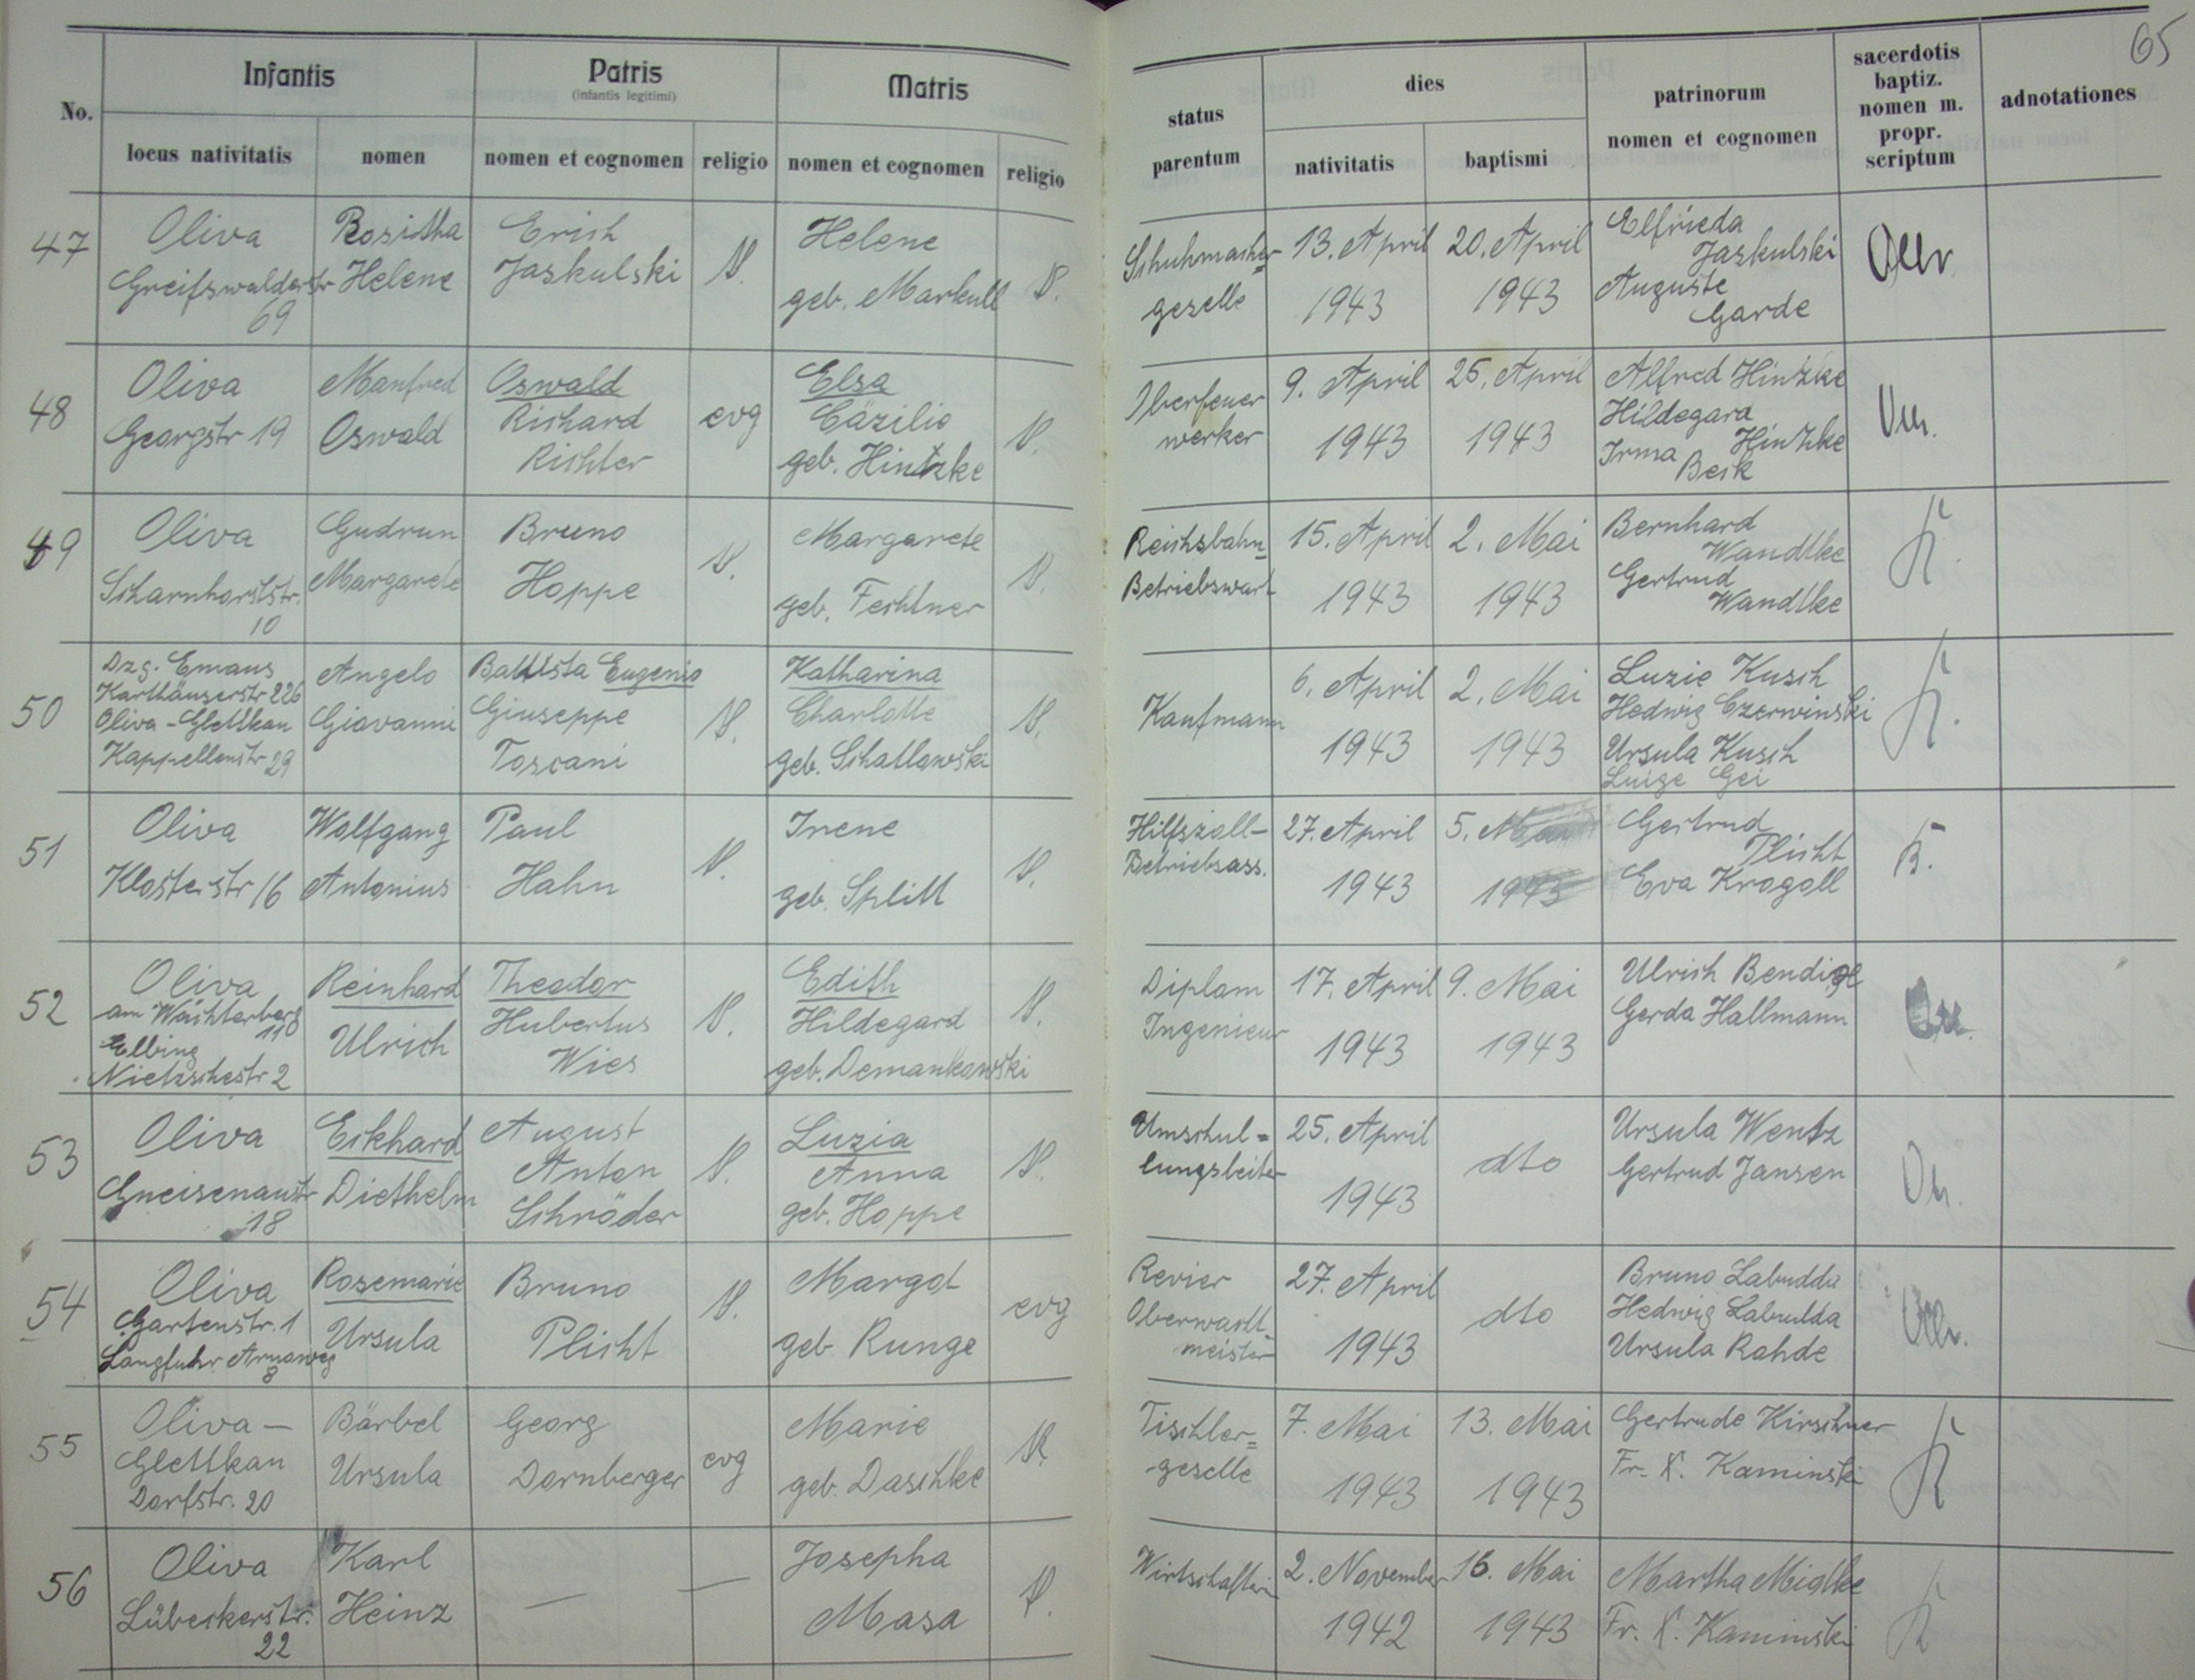 65
No.
Infantis
locus nativitatis
nomen
Patris
(infantis legitimi)
nomen et cognomen
religio
Matris
nomen et cognomen
religio
status
parentum
dies
nativitatis
baptismi
patrinorum
nomen et cognomen
sacerdotis
baptiz.
nomen m.
propr.
scriptum
adnotationes
47
Oliva
Greifswalderstr
69
Rositha
Helene
Erich
Jaskulski
Helene
geb. Markull
Schuhmacher=
geselle
13. April
1943
20. April
1943
Elfrieda
Jaskulski
Auguste
Garde
48
Oliva
Georgstr 19
Manfred
Oswald
Oswald
Richard
Richter
evg
Elsa
Cäzilie
geb. Hintzke
Oberfeuer
werker
9. April
1943
25. April
1943
Alfred Hintzke
Hildegard
Hintzke
Irma
Beck
49
Oliva
Scharnhorststr.
10
Gudrun
Margarete
Bruno
Hoppe
Margarete
geb. Fechtner
Reichsbahn=
Betriebswart
15. April
1943
2. Mai
1943
Bernhard
Wandtke
Gertrud
Wandtke
K.
50
Dzg. Emaus
Karthäuserstr 226
Oliva - Glettkau
Kappellenstr 29
Angelo
Giovanni
Battista Eugenio
Giuseppe
Toscani
Katharina
Charlotte
geb. Schatlowski
Kaufmann
6. April
1943
2. Mai
1943
Luzie Kusch
Hedwig Czerwinski
Ursula Kusch
Luige Gei
K.
51
Oliva
Klosterstr 16
Wolfgang
Antonius
Paul
Hahn
Irene
geb. Splitt
Hilfszoll-
Betriebsass.
27. April
1943
5. Mai
1943
Gertrud
Plicht
Eva Kragoll
K.
52
Oliva
am Wächterberg
110
Elbing
Nietzschestr 2
Reinhard
Ulrich
Theodor
Hubertus
Wies
Edith
Hildegard
geb. Demankowski
Diplom
Ingenieur
17. April
1943
9. Mai
1943
Ulrich
Gerda Hallmann
53
Oliva
Gneisenaustr
18
Eckhard
Diethelm
August
Anton
Schröder
Luzia
Anna
geb. Hoppe
Umschul=
lungsleiter
25. April
1943
dto
Ursula Wentz
Gertrud Jansen
54
Oliva
Gartenstr. 1
Langfuhr
8
Rosemarie
Ursula
Bruno
Plicht
Margot
geb. Runge
evg
Revier
Oberwacht=
meister
27. April
1943
dto
Bruno Labudda
Hedwig Labudda
Ursula Rohde
55
Oliva -
Glettkau
Dorfstr. 20
Bärbel
Ursula
Georg
Dornberger
evg
Marie
geb. Daschke
Tischler=
geselle
7. Mai
1943
13. Mai
1943
Gertrude Kirschner
Fr. X. Kaminski
K
56
Oliva
Lübeckerstr.
22
Karl
Heinz
—
—
Josepha
Masa
Wirtschafterin
2. November
1942
16. Mai
1943
Martha Mielke
Fr. X. Kaminski
K